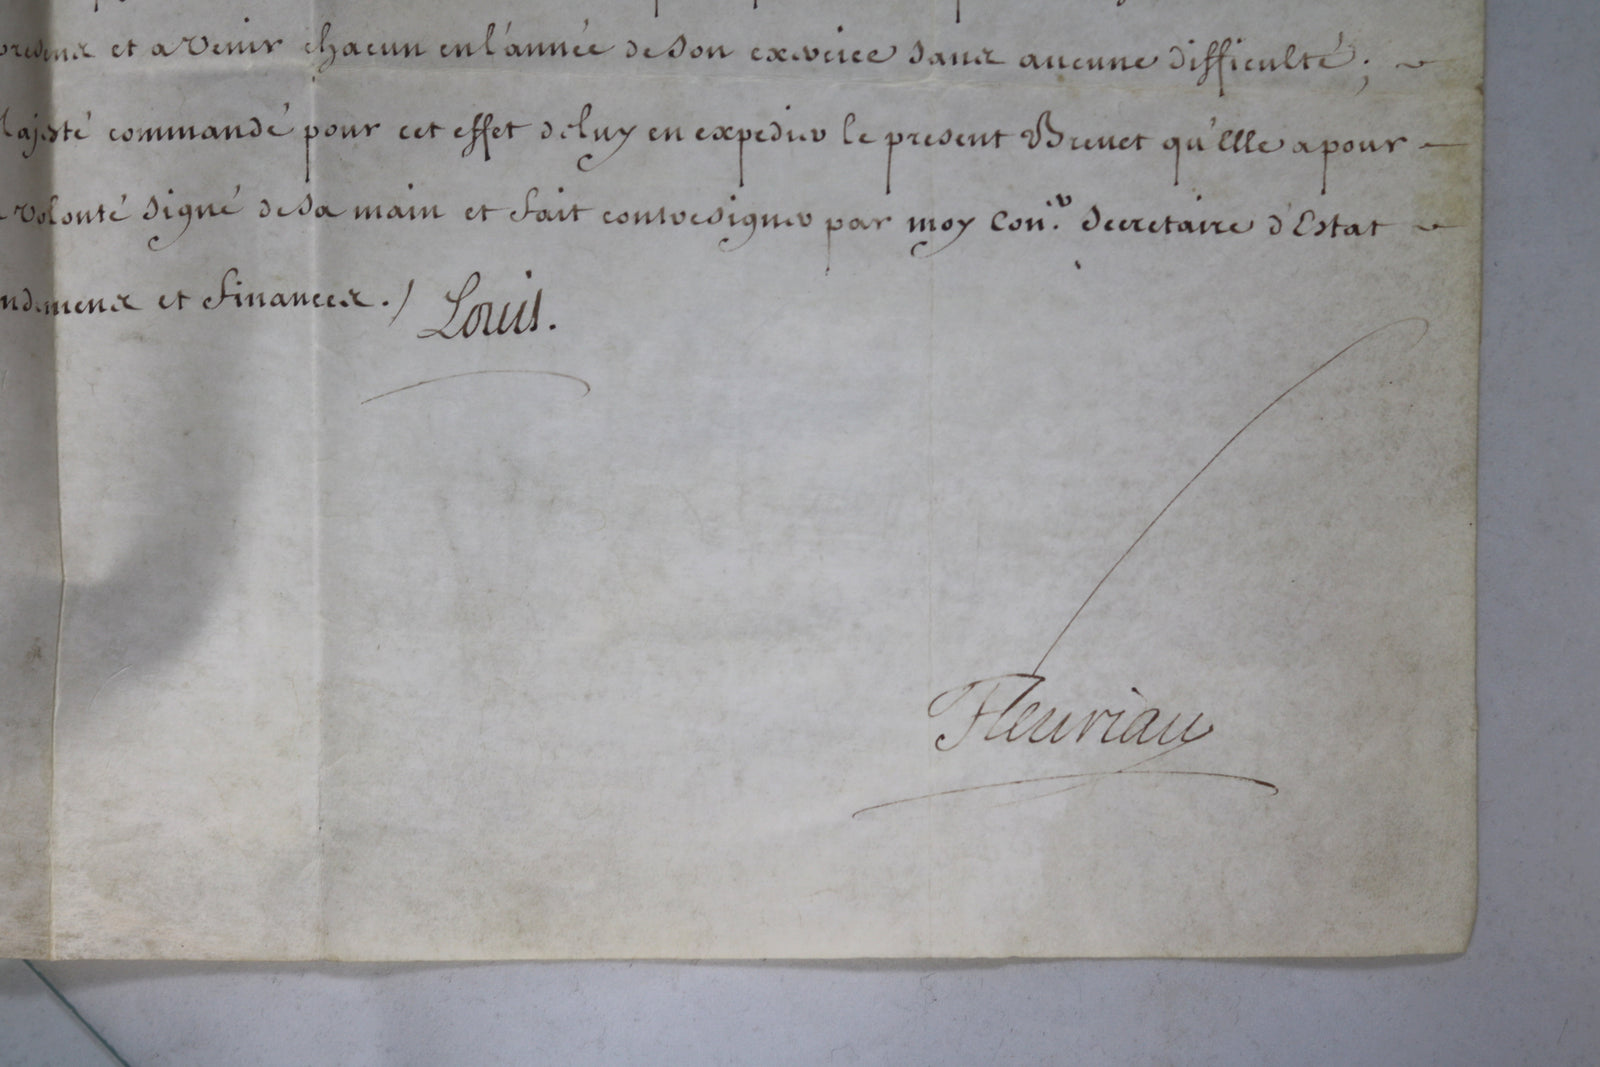 presens et avenir chacun en l'année de son exercice sans aucune difficulté;
Majesté commandé pour cet effet de luy en expedier le present Brevet qu'Elle a pour
volonté signé de sa main et fait contresigner par moy Con.er Secretaire d'Estat
ndemens et finances./ Louis.
Fleuriau